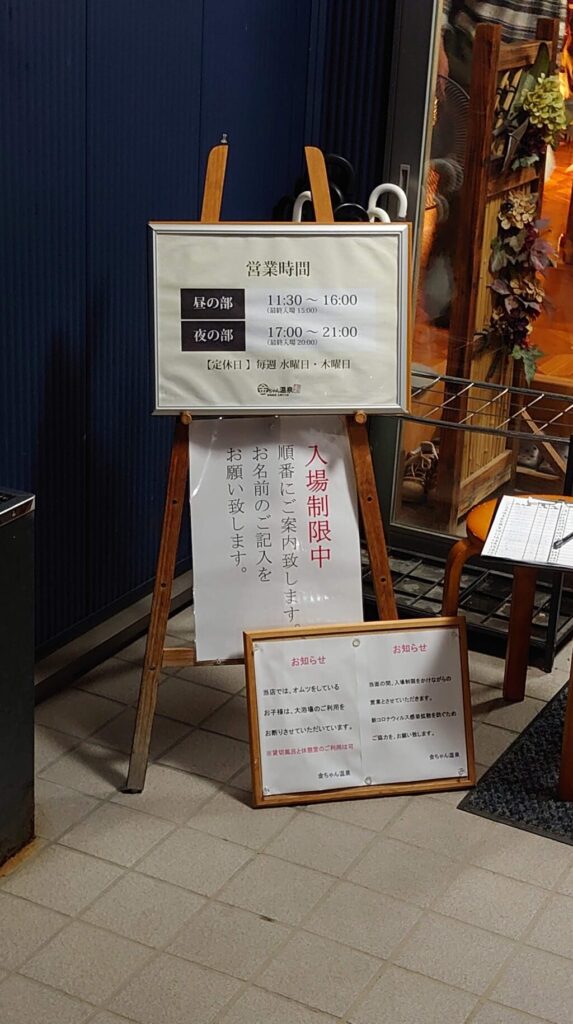 営業時間
昼の部 11:30 〜 16:00
(最終入場 15:00)
夜の部 17:00 〜 21:00
(最終入場 20:00)
【定休日】毎週 水曜日・木曜日
金ちゃん温泉
入場制限中
順番にご案内致します。
お名前のご記入を
お願い致します。
お知らせ
当店では、オムツをしている
お子様は、大浴場のご利用を
お断りさせていただいています。
※貸切風呂と休憩室のご利用は可
金ちゃん温泉
お知らせ
当面の間、入場制限をかけながらの
営業とさせていただきます。
新コロナウィルス感染拡散を防ぐため
ご協力を、お願い致します。
金ちゃん温泉